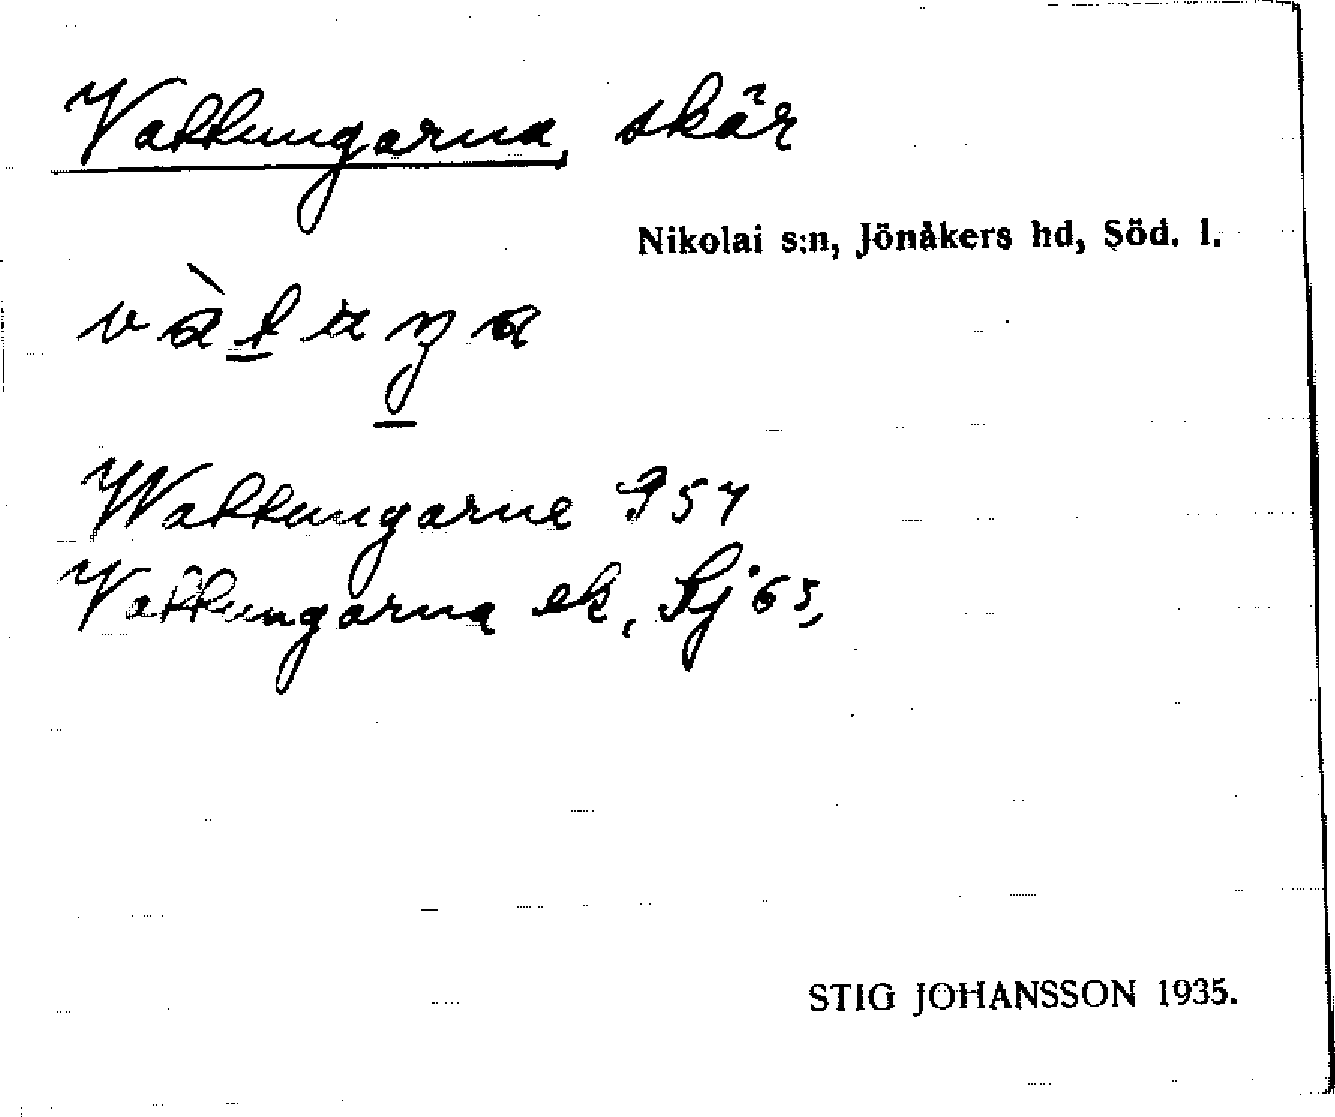 Vattungarna, skär
Nikolai s:n, Jönåkers hd, Söd. l.
Wattungarne S 57
Vattungarna ek, Sj 65,
STIG JOHANSSON 1935.